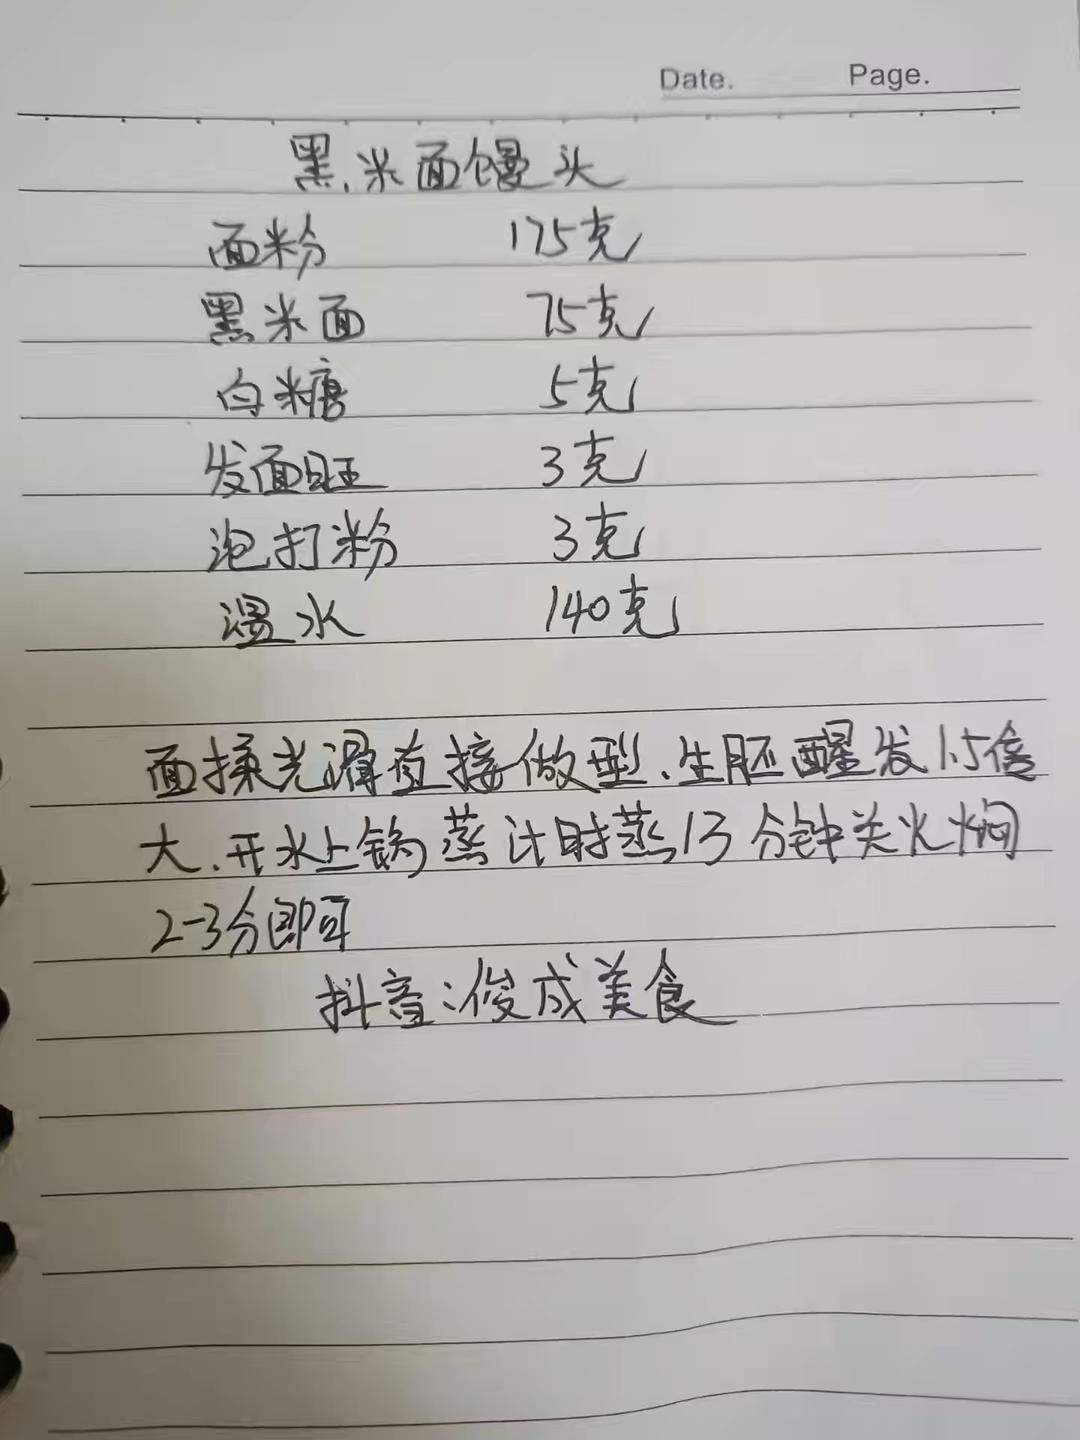 Date. Page.
黑米面馒头
面粉 175克
黑米面 75克
白糖 5克
发面旺 3克
泡打粉 3克
温水 140克
面揉光滑直接做型、生胚醒发1.5倍
大、开水上锅蒸计时蒸13分钟关火焖
2-3分即可
抖音:俊成美食